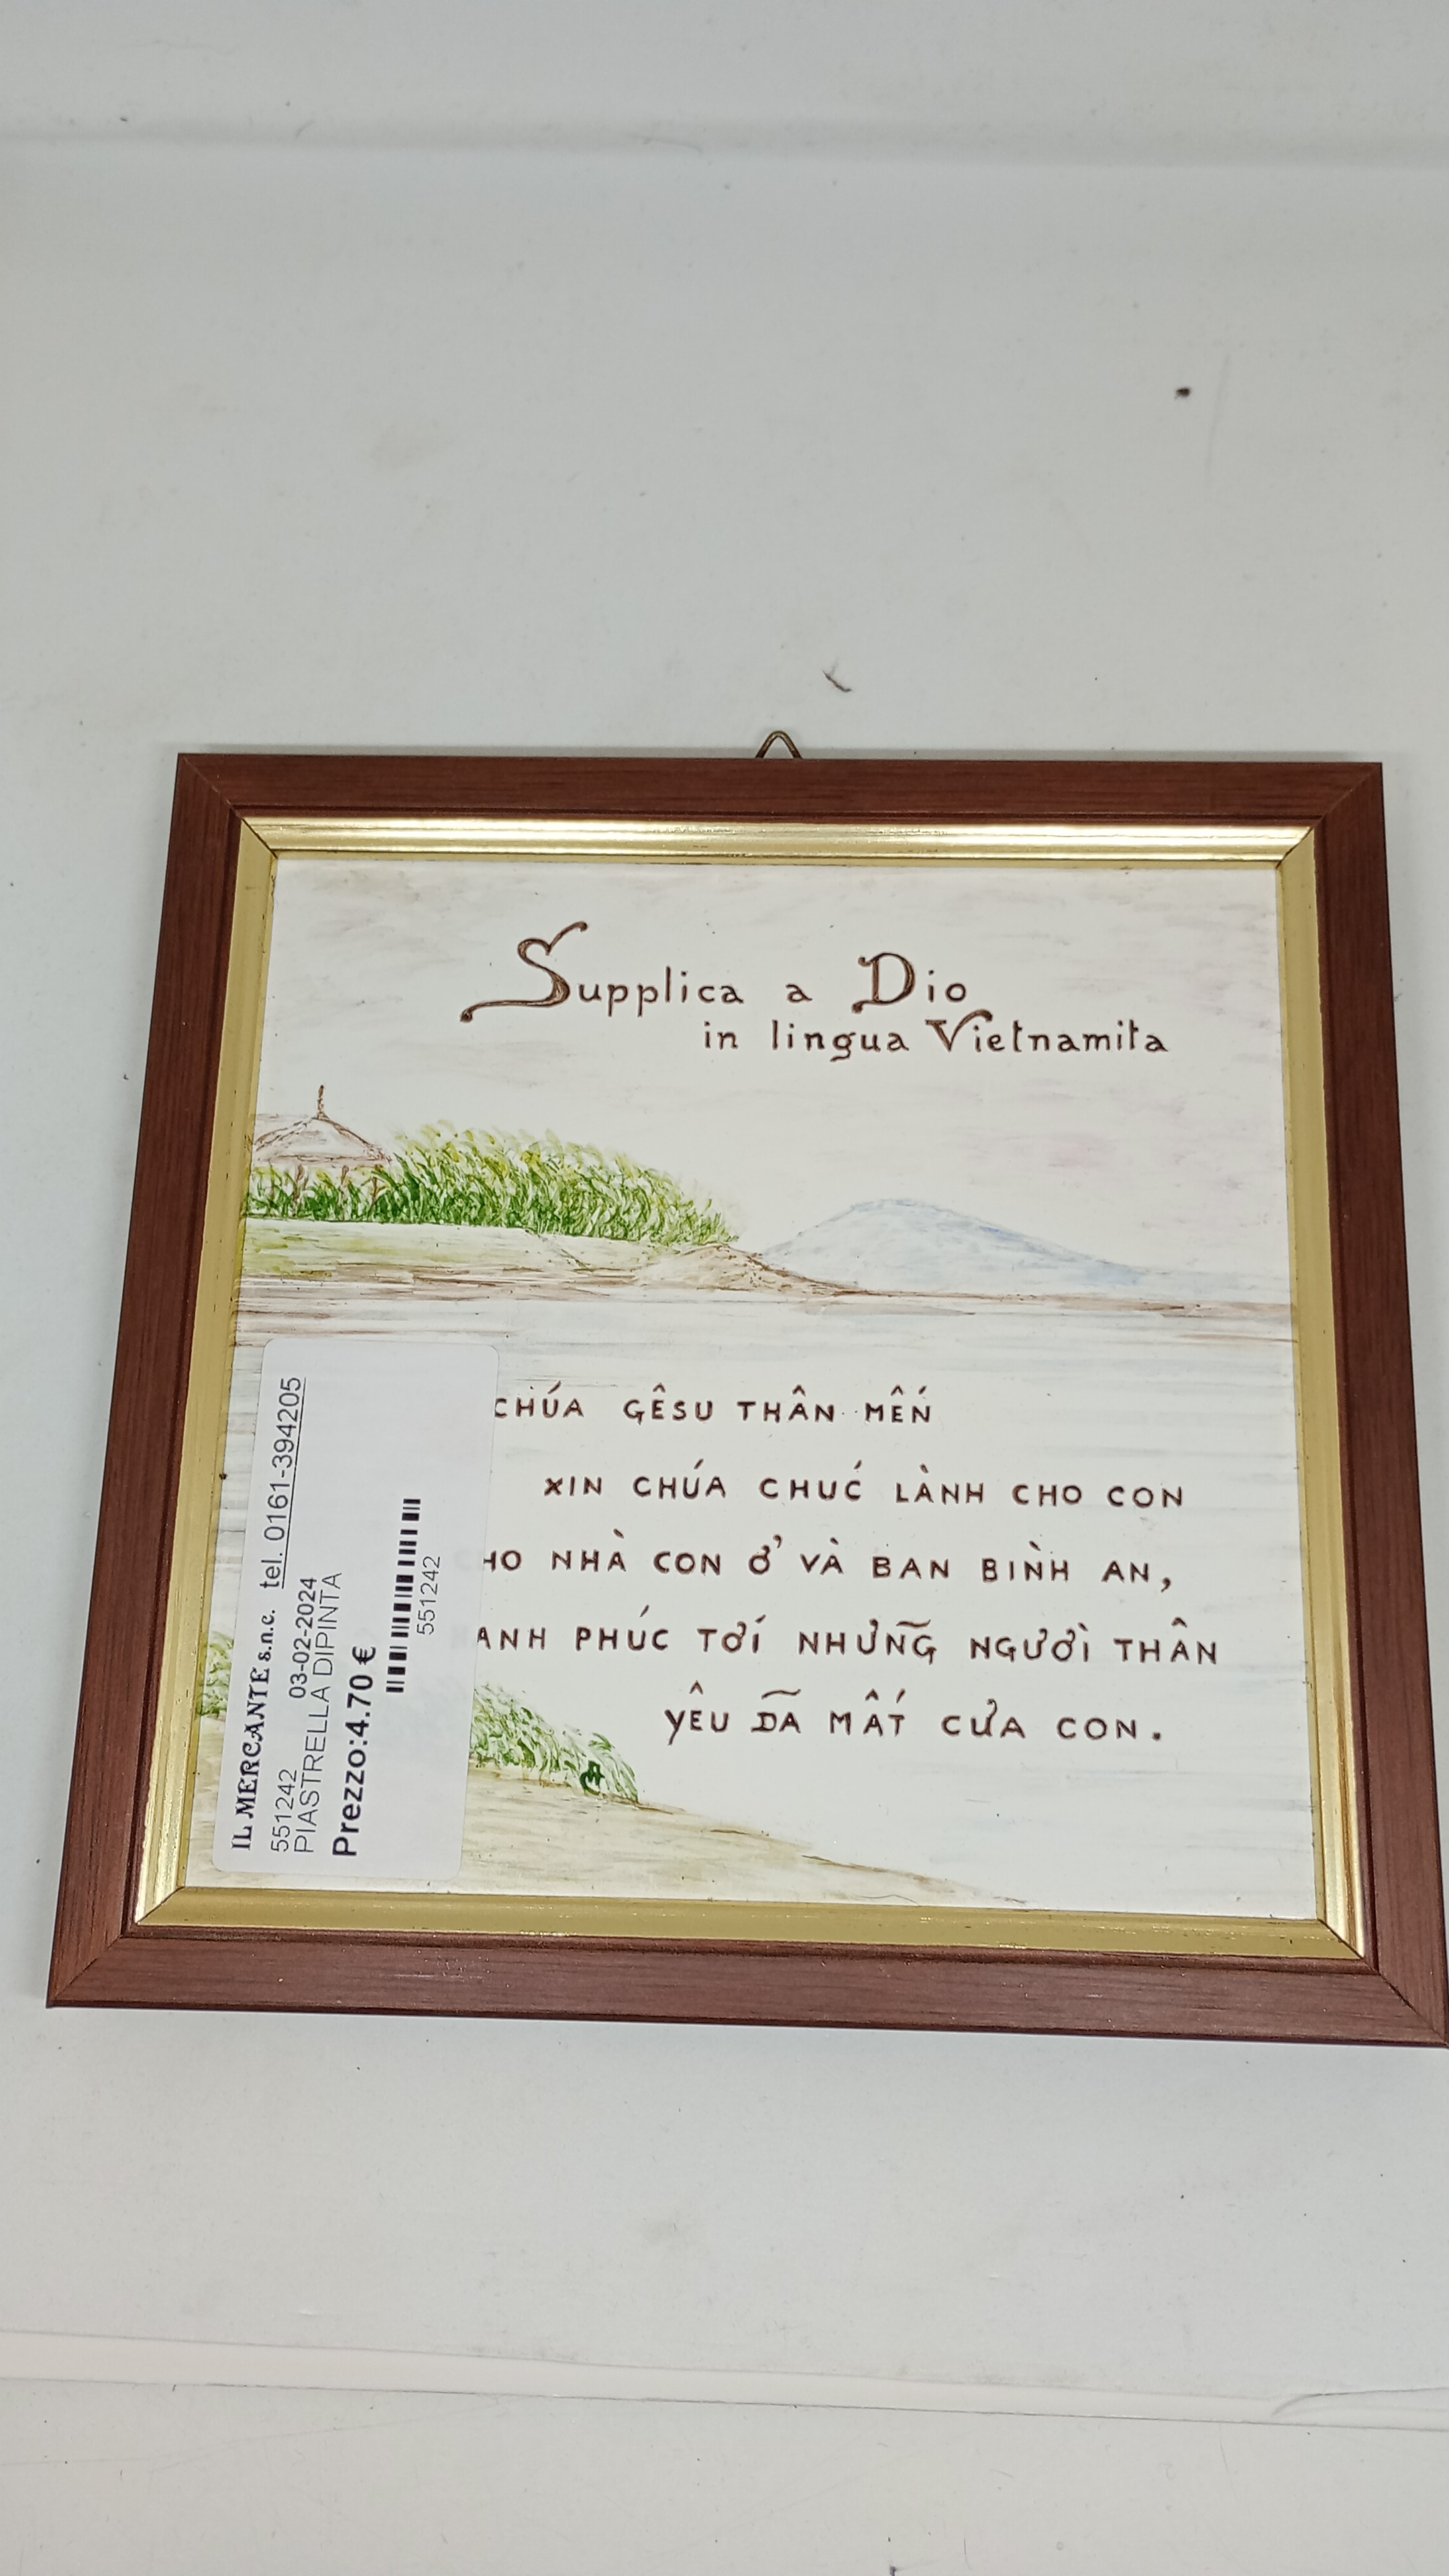 Supplica a Dio
in lingua Vietnamita
CHÚA GÊSU THÂN MẾN
XIN CHÚA CHUĆ LÀNH CHO CON
HO NHÀ CON Ở VÀ BAN BIǸH AN,
ANH PHÚC TƠÍ NHƯNG̃ NGƯƠÌ THÂN
YÊU DÃ MẤT CỬA CON.
IL MERCANTE s.n.c. tel. 0161-394205
551242 03-02-2024
PIASTRELLA DIPINTA
Prezzo:4.70 €
551242